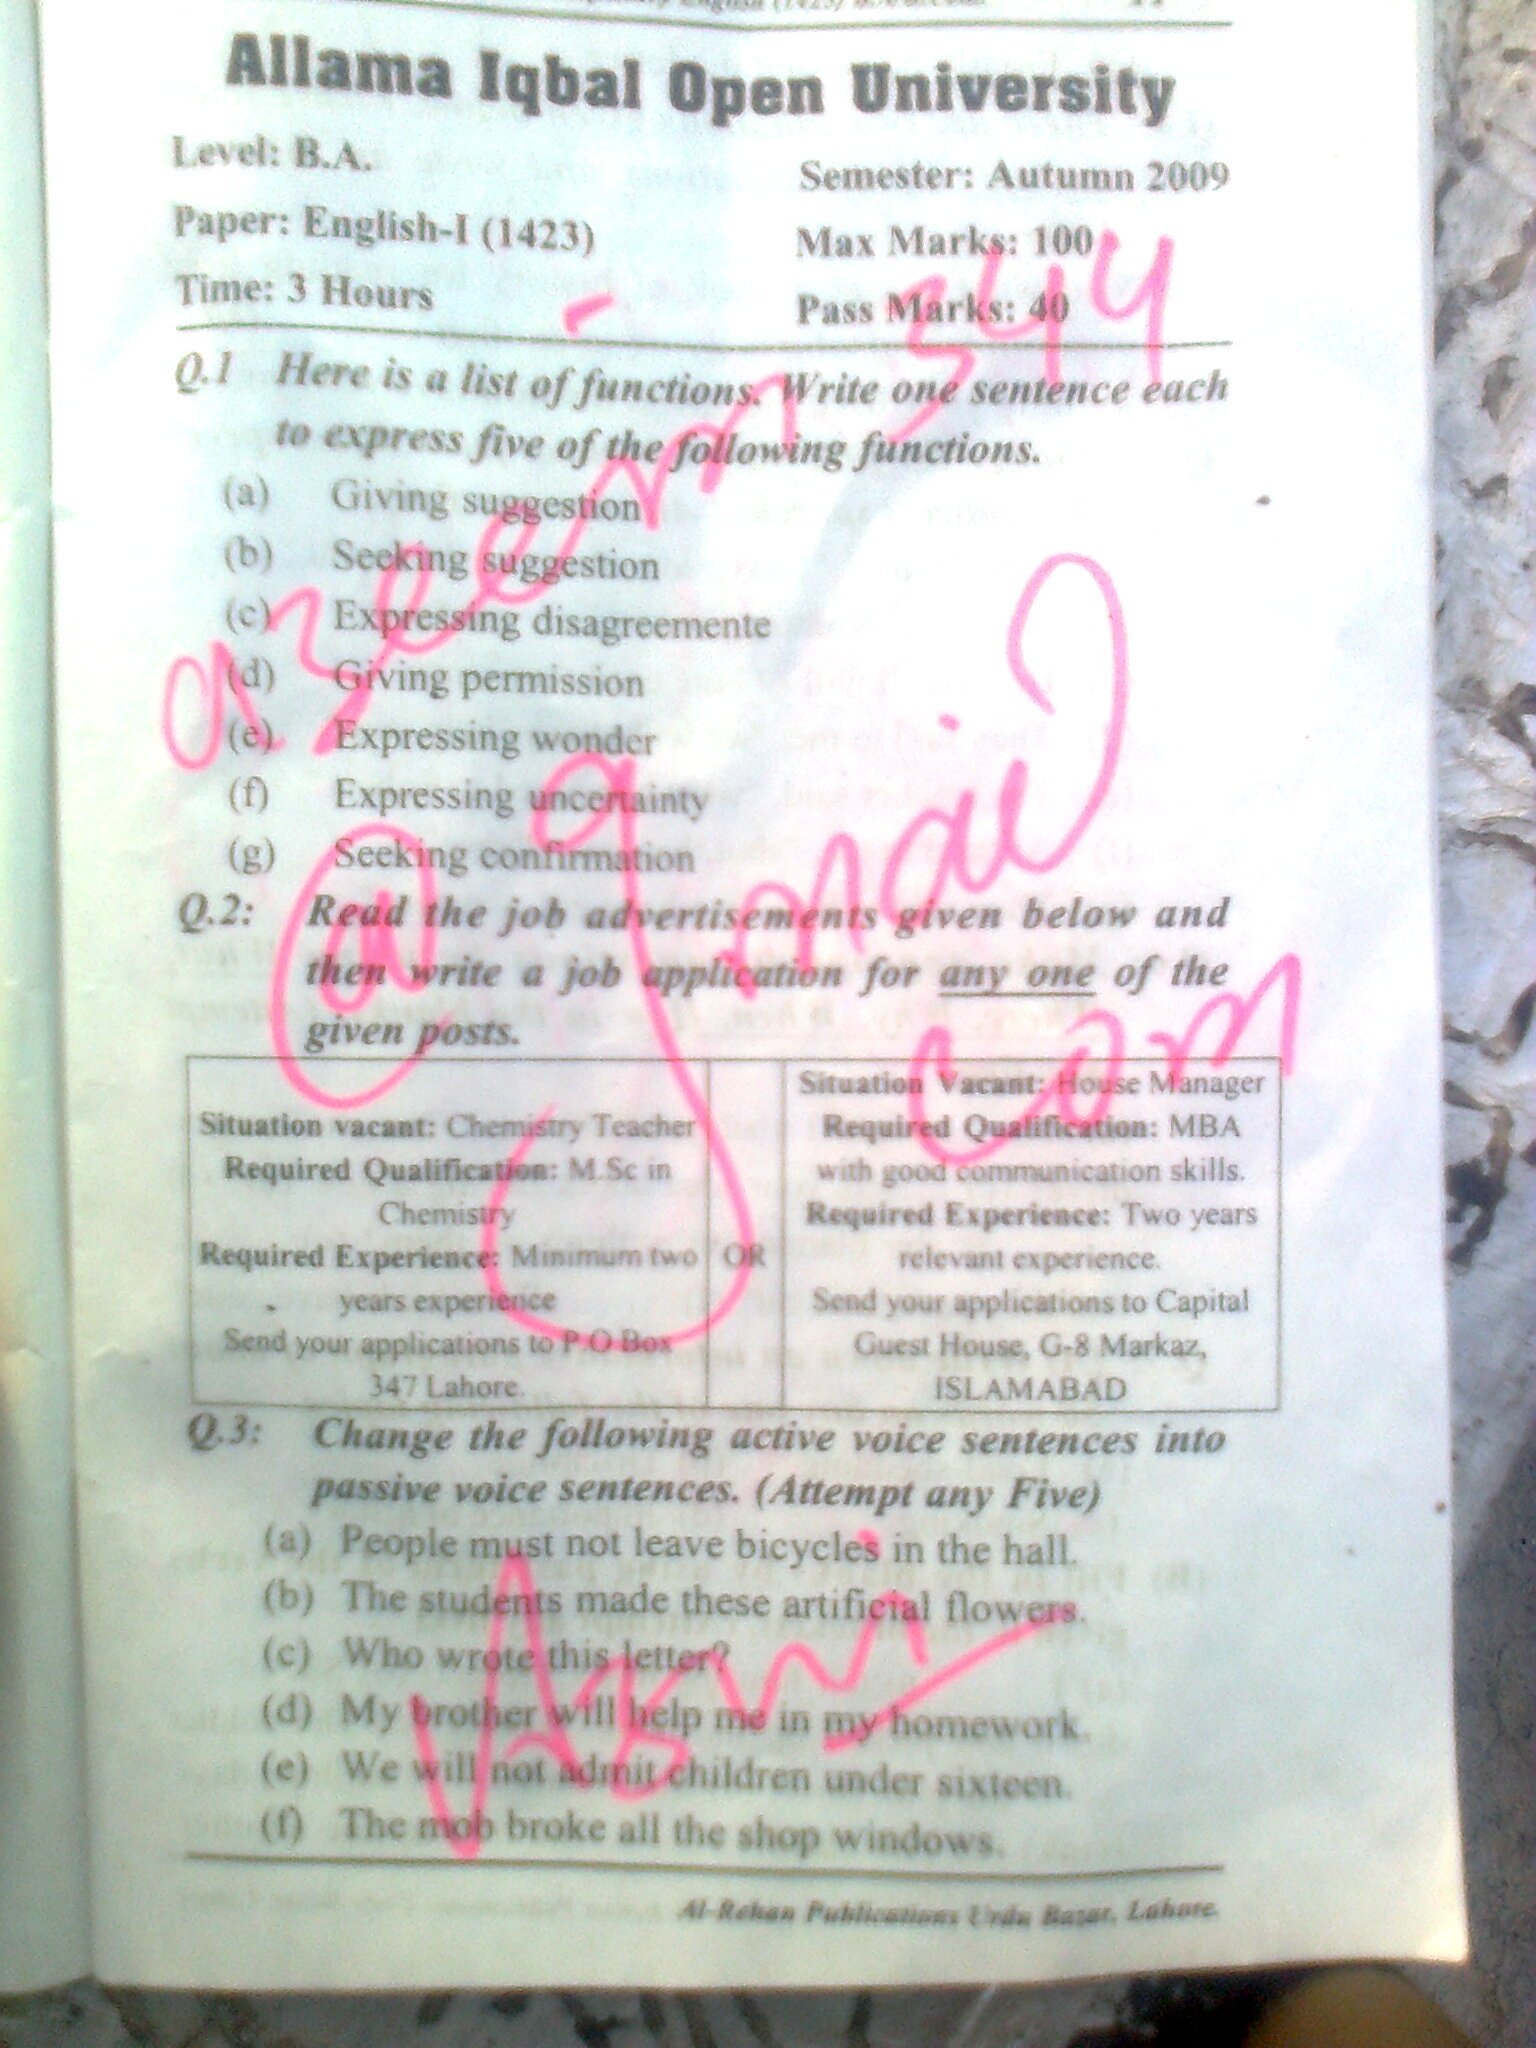 Allama Iqbal Open University
Level: B.A.
Semester: Autumn 2009
Paper: English-I (1423)
Max Marks: 100
Time: 3 Hours
Pass Marks: 40
Q.1 Here is a list of functions. Write one sentence each
to express five of the following functions.
(a) Giving suggestion
(b) Seeking suggestion
(c) Expressing disagreemente
(d) Giving permission
(e) Expressing wonder
(f) Expressing uncertainty
(g) Seeking confirmation
azeem344
@gmail
com
Q.2: Read the job advertisements given below and
then write a job application for any one of the
given posts.
Situation vacant: Chemistry Teacher
Required Qualification: M.Sc in
Chemistry
Required Experience: Minimum two
years experience
Send your applications to P O Box
347 Lahore.
OR
Situation Vacant: House Manager
Required Qualification: MBA
with good communication skills.
Required Experience: Two years
relevant experience.
Send your applications to Capital
Guest House, G-8 Markaz,
ISLAMABAD
Q.3: Change the following active voice sentences into
passive voice sentences. (Attempt any Five)
(a) People must not leave bicycles in the hall.
(b) The students made these artificial flowers.
(c) Who wrote this letter?
(d) My brother will help me in my homework.
(e) We will not admit children under sixteen.
(f) The mob broke all the shop windows.
Al-Rehan Publications Urdu Bazar, Lahore.